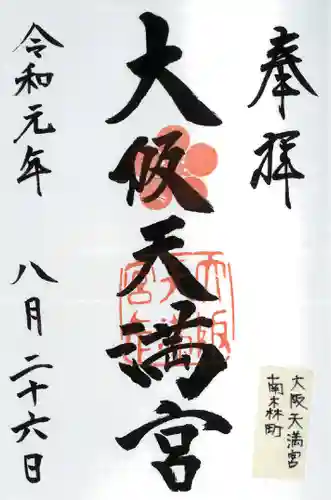 奉拝
大阪天満宮
令和元年 八月二十六日
大阪天満宮
南木森町